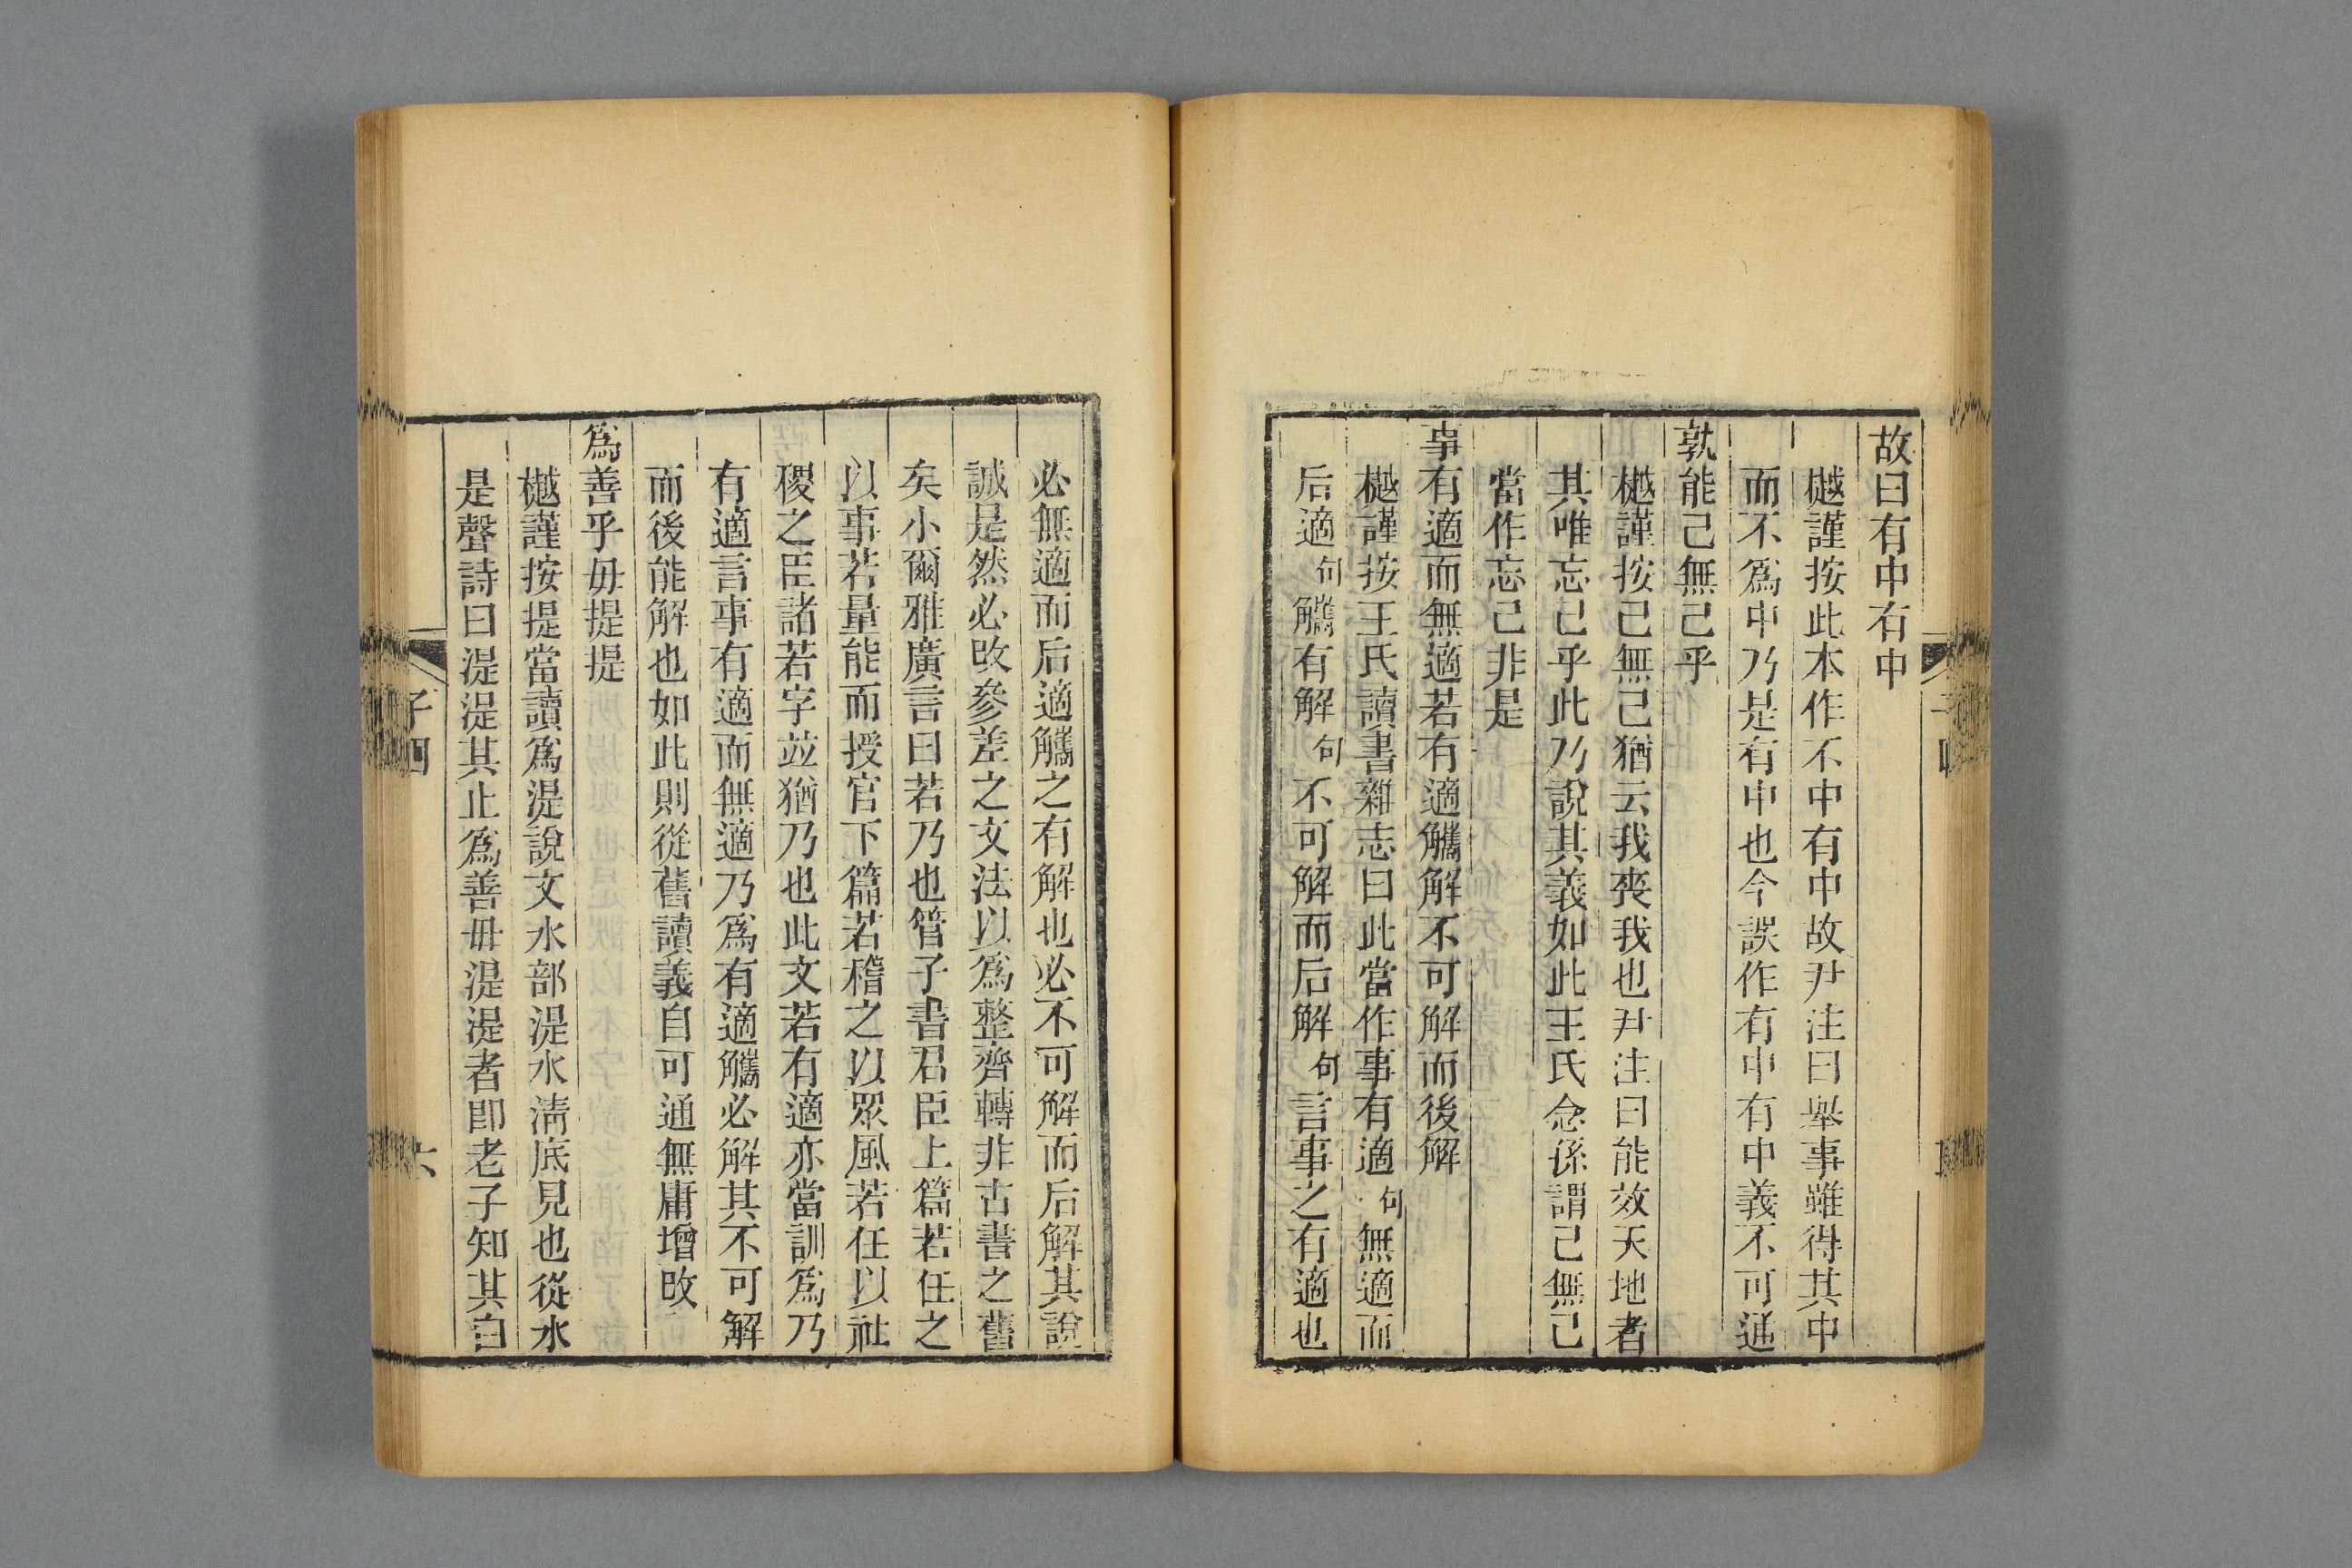 故曰有中有中
樾謹按此本作不中有中故尹注曰舉事雖得其中
而不爲中乃是有中也今誤作有中有中義不可通
孰能己無己乎
樾謹按己無己猶云我喪我也尹注曰能效天地者
其唯忘己乎此乃說其義如此王氏念孫謂己無己
當作忘己非是
事有適而無適若有適觿解不可解而後解
樾謹按王氏讀書雜志曰此當作事有適句無適而
后適句觿有解句不可解而后解句言事之有適也
必無適而后適觿之有解也必不可解而后解其說
誠是然必改參差之文法以爲整齊轉非古書之舊
矣小爾雅廣言曰若乃也管子書君臣上篇若任之
以事若量能而授官下篇若稽之以眾風若任以社
稷之臣諸若字竝猶乃也此文若有適亦當訓爲乃
有適言事有適而無適乃爲有適觿必解其不可解
而後能解也如此則從舊讀義自可通無庸增改
爲善乎毋提提
樾謹按提當讀爲湜說文水部湜水淸底見也從水
是聲詩曰湜湜其止爲善毋湜湜者卽老子知其白
子四
六